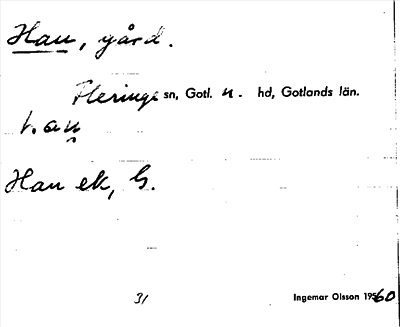 Hau, gård.
Fleringe sn, Gotl. n. hd, Gotlands län.
Hau ek, G.
31
Ingemar Olsson 1960